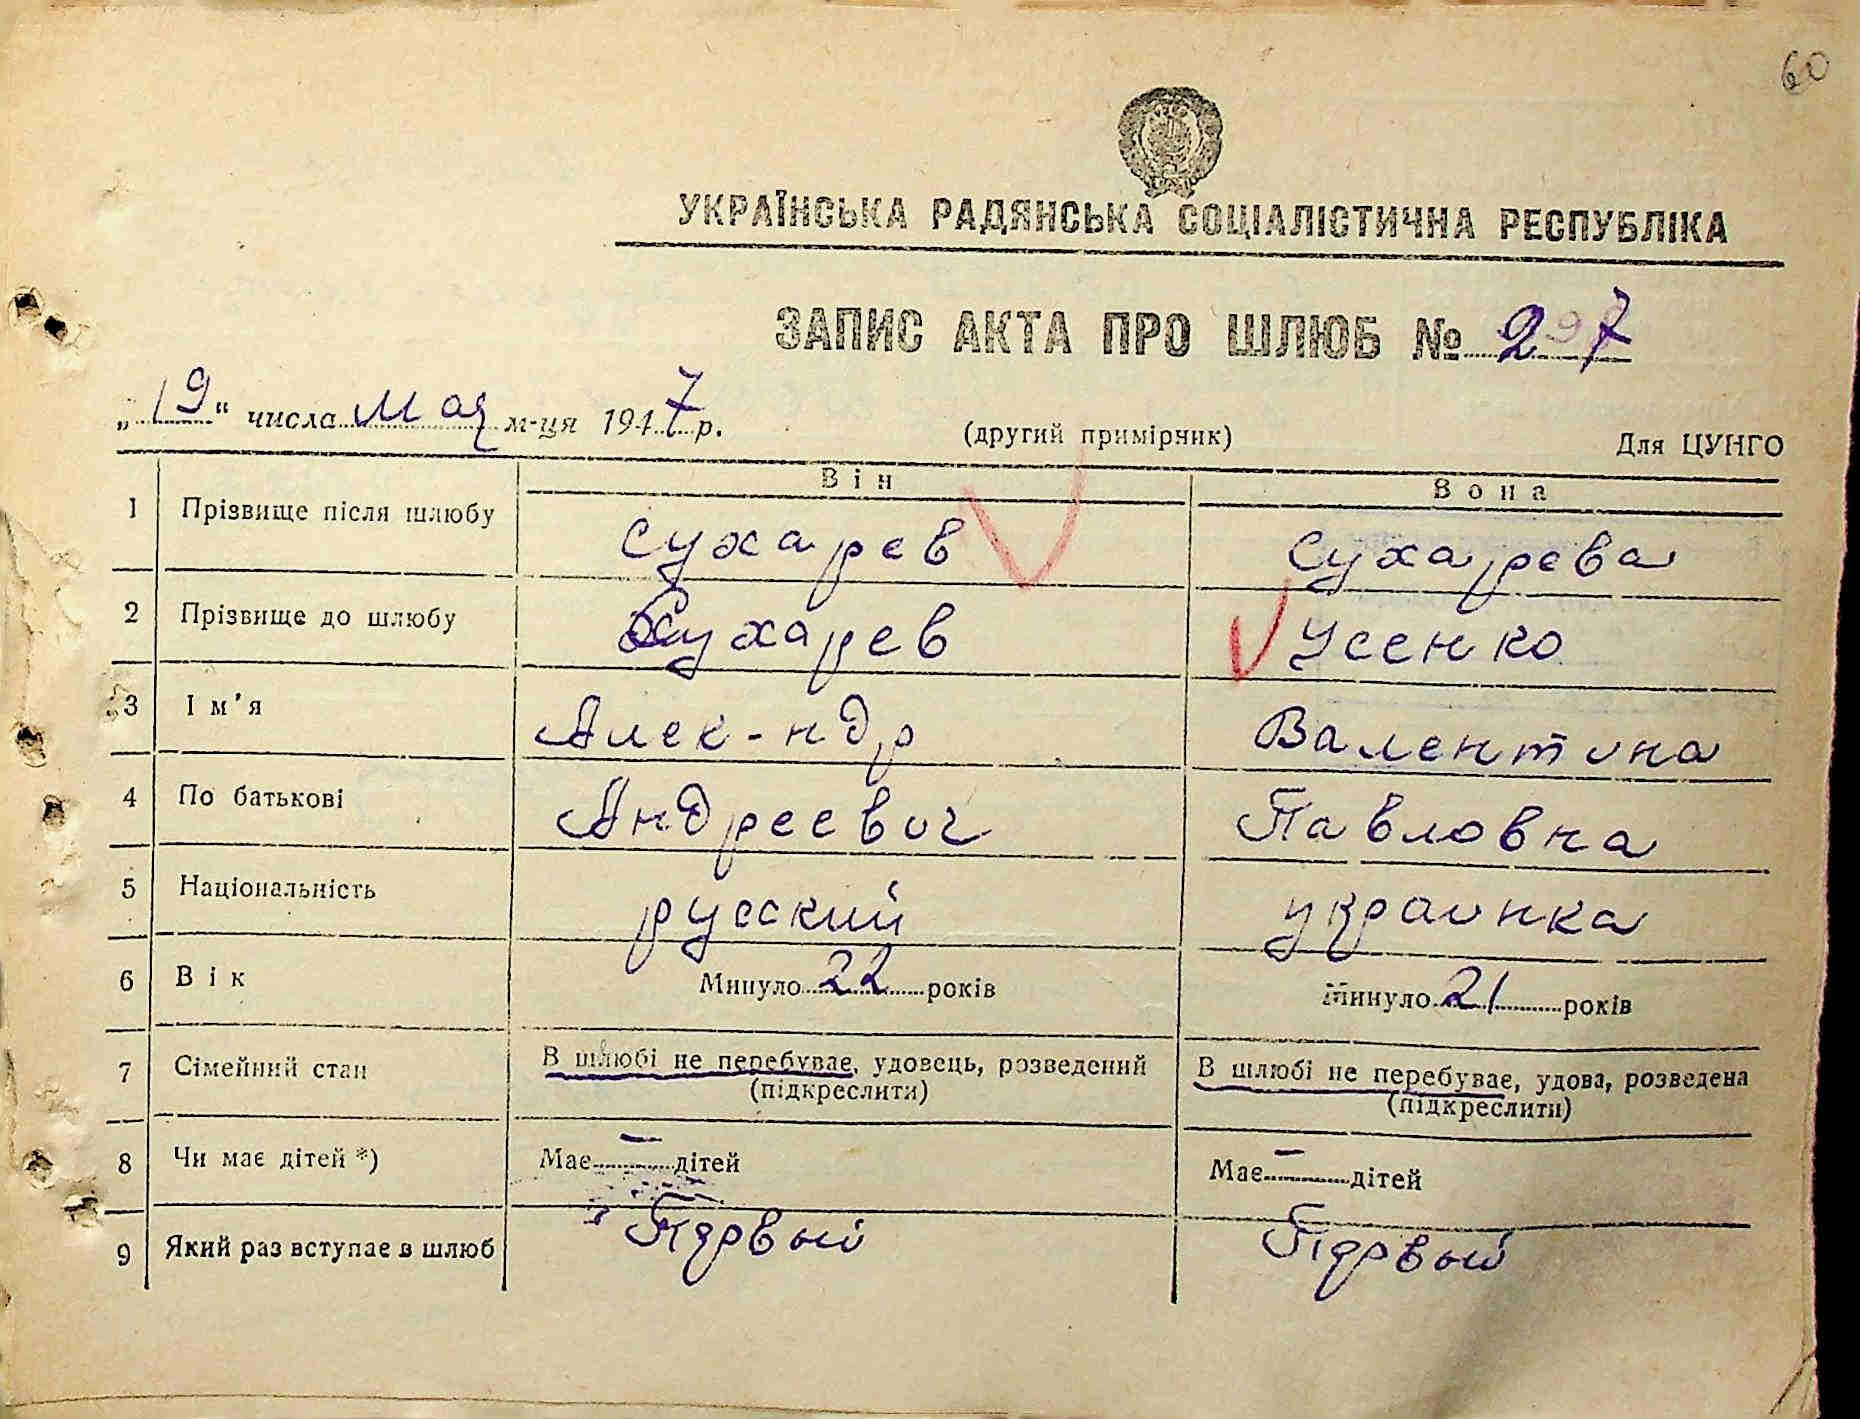 60
УКРАЇНСЬКА РАДЯНСЬКА СОЦІАЛІСТИЧНА РЕСПУБЛІКА
ЗАПИС АКТА ПРО ШЛЮБ № 297
„19“ числа мая м-ця 1947 р. (другий примірник) Для ЦУНГО
Він Вона
1 Прізвище після шлюбу Сухарев Сухарева
2 Прізвище до шлюбу Сухарев Усенко
3 Ім'я Алек-ндр Валентина
4 По батькові Андреевич Павловна
5 Національність русский украинка
6 Вік Минуло 22 років Минуло 21 років
7 Сімейний стан В шлюбі не перебуває, удовець, розведений В шлюбі не перебуває, удова, розведена
(підкреслити) (підкреслити)
8 Чи має дітей *) Має — дітей Має — дітей
9 Який раз вступає в шлюб Первый Первый